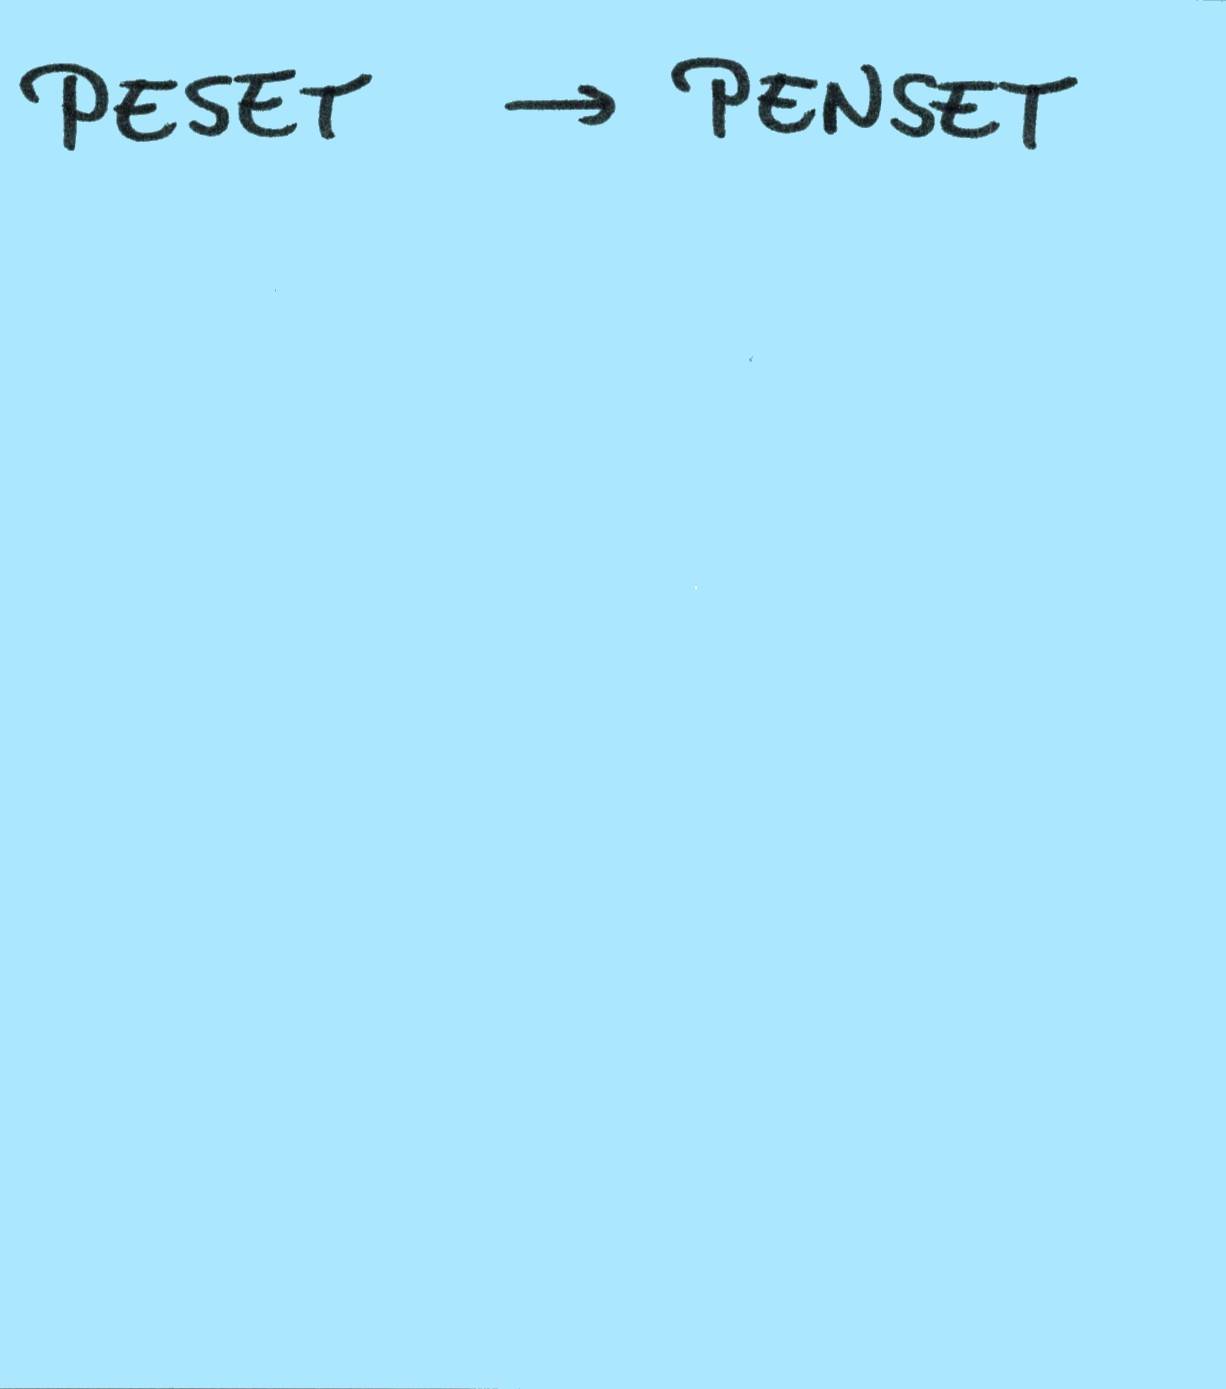 PESET → PENSET